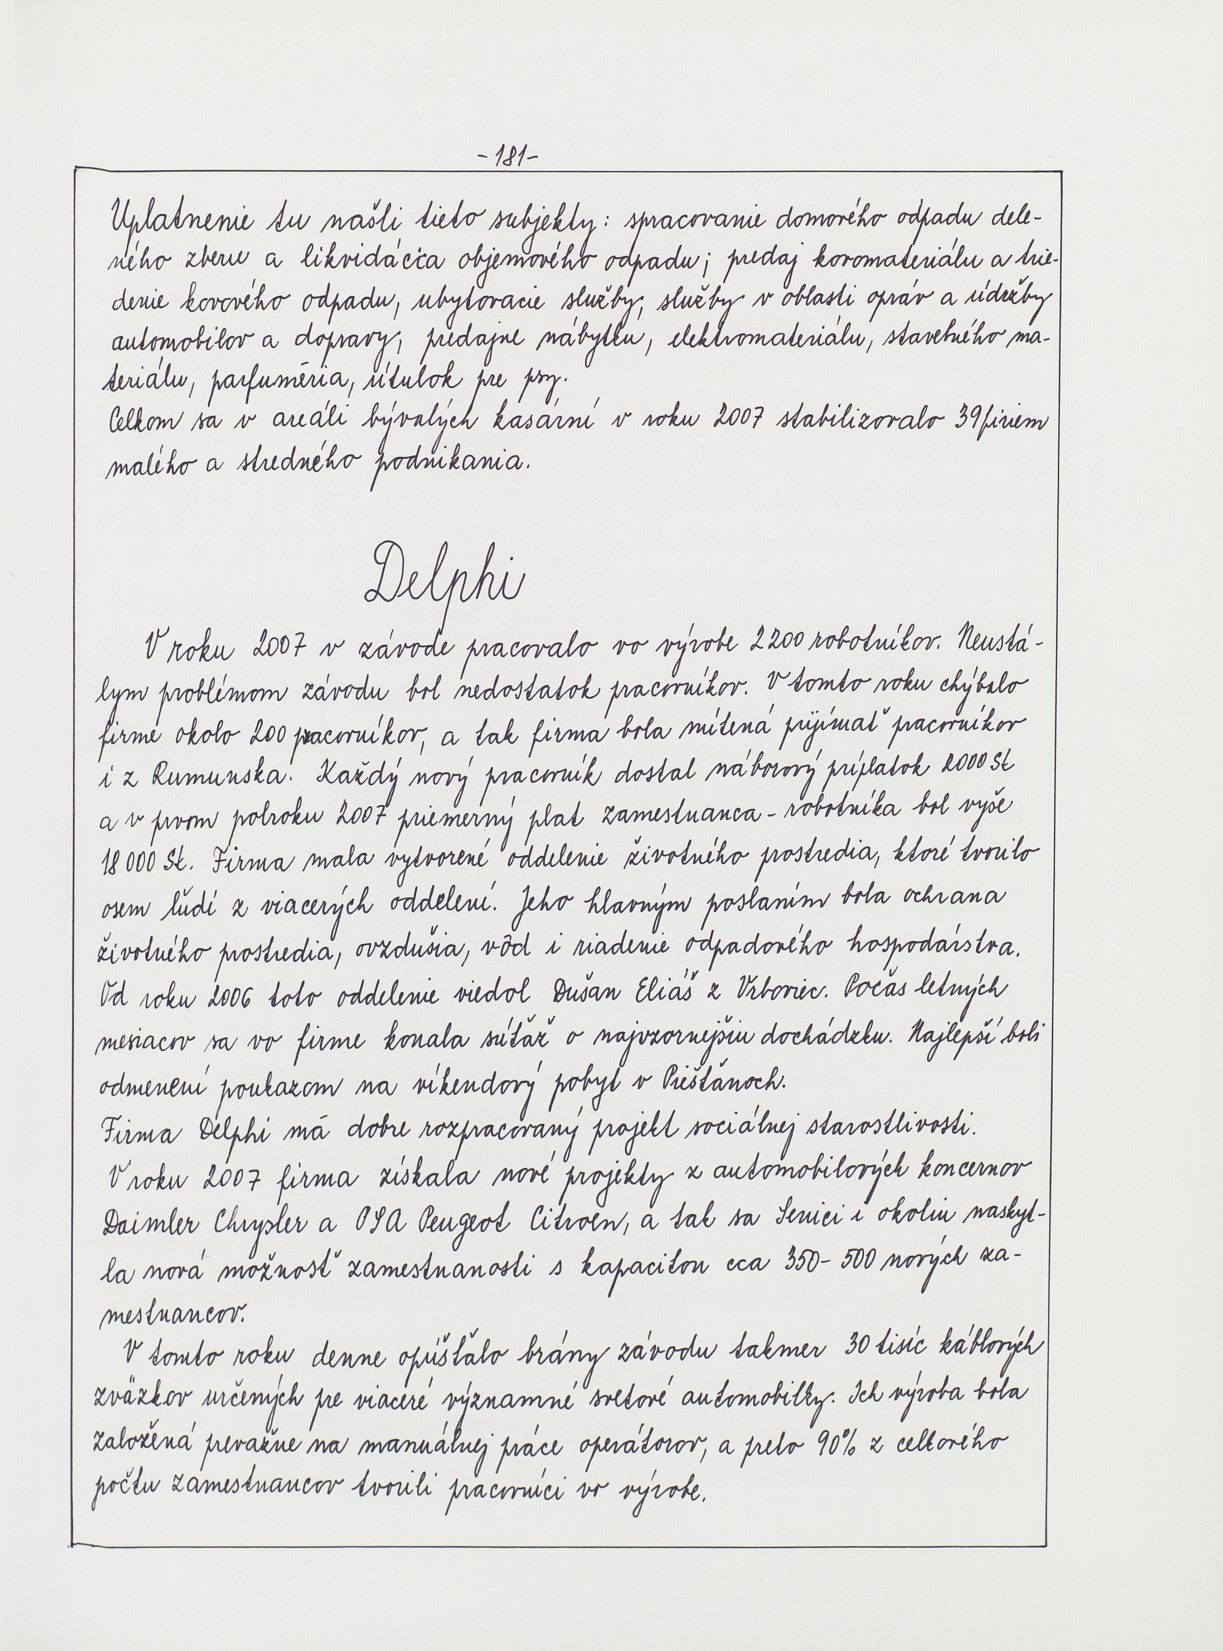 -181-
Uplatnenie tu našli tieto subjekty: spracovanie domového odpadu dele-
ného zberu a likvidácia objemového odpadu; predaj kovomateriálu a trie-
denie kovového odpadu, ubytovacie služby, služby v oblasti opráv a údržby
automobilov a dopravy, predajne nábytku, elektromateriálu, stavebného ma-
teriálu, parfuméria, útulok pre psy.
Celkom sa v areáli bývalých kasární v roku 2007 stabilizovalo 39 firiem
malého a stredného podnikania.
Delphi
V roku 2007 v závode pracovalo vo výrobe 2200 robotníkov. Neustá-
lym problémom závodu bol nedostatok pracovníkov. V tomto roku chýbalo
firme okolo 200 pracovníkov, a tak firma bola nútená prijímať pracovníkov
i z Rumunska. Každý nový pracovník dostal náborový príplatok 2000 Sk
a v prvom polroku 2007 priemerný plat zamestnanca - robotníka bol vyše
18 000 Sk. Firma mala vytvorené oddelenie životného prostredia, ktoré tvorilo
osem ľudí z viacerých oddelení. Jeho hlavným poslaním bola ochrana
životného prostredia, ovzdušia, vôd i riadenie odpadového hospodárstva.
Od roku 2006 toto oddelenie viedol Dušan Eliáš z Vrboviec. Počas letných
mesiacov sa vo firme konala súťaž o najvzornejšiu dochádzku. Najlepší boli
odmenení poukazom na víkendový pobyt v Piešťanoch.
Firma Delphi má dobre rozpracovaný projekt sociálnej starostlivosti.
V roku 2007 firma získala nové projekty z automobilových koncernov
Daimler Chrysler a PSA Peugeot Citroen, a tak sa Senici i okoliu naskyt-
la nová možnosť zamestnanosti s kapacitou cca 350-500 nových za-
mestnancov.
V tomto roku denne opúšťalo brány závodu takmer 30 tisíc káblových
zväzkov určených pre viaceré významné svetové automobilky. Ich výroba bola
založená prevažne na manuálnej práce operátorov, a preto 90% z celkového
počtu zamestnancov tvorili pracovníci vo výrobe.